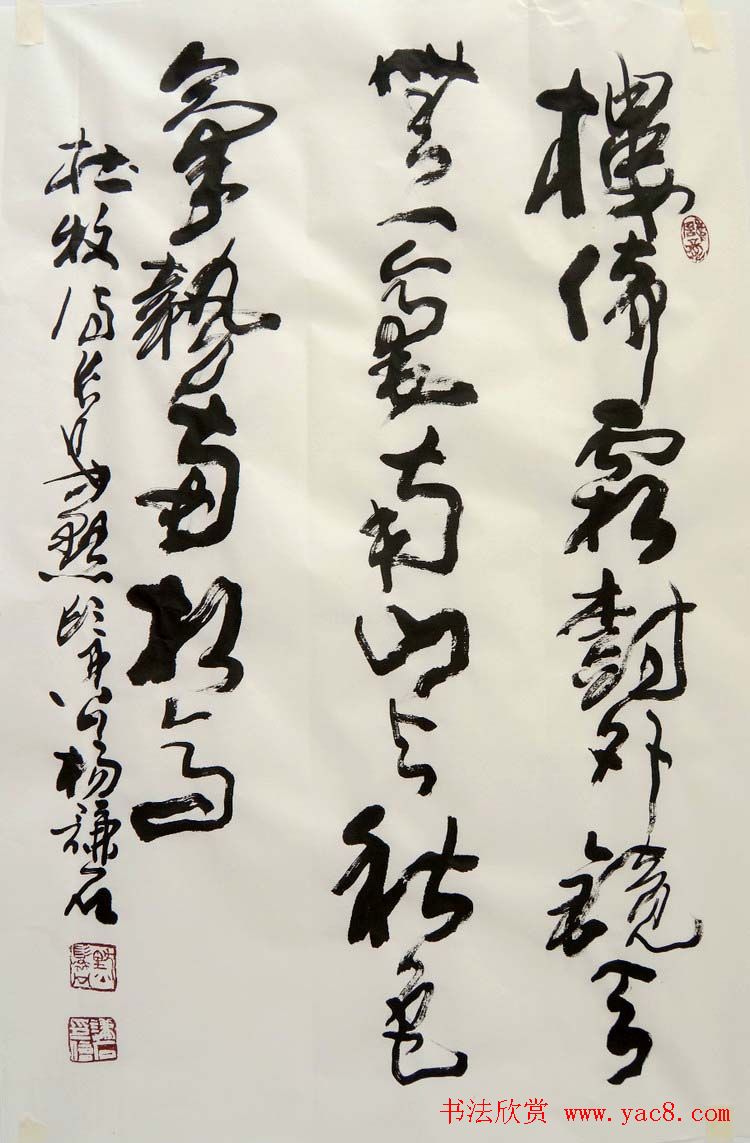 樓倚霜樹外鏡天
無一毫南山与秋色
氣勢兩相高
杜牧詩長默髯楊謙石
书法欣赏 www.yac8.com